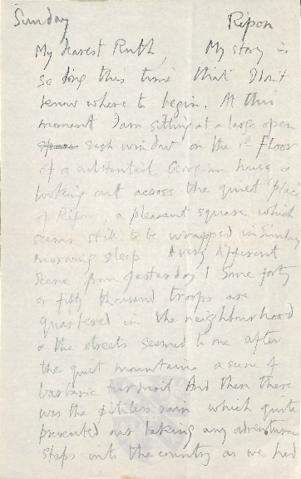 Sunday Ripon
My dearest Ruth, My story is
so long this time that I don't
know where to begin. At this
moment I am sitting at a large open
sash window on the 1st floor
of a substantial Georgian house &
looking out across the quiet place
of Ripon, a pleasant square which
seems still to be wrapped in Sunday
morning sleep. A very different
scene from yesterday! Some forty
or fifty thousand troops are
quartered in the neighbourhood
& the streets seemed to me after
the quiet mountains a scene of
barbaric turmoil. And then there
was the pitiless rain which quite
prevented our taking any adventurous
steps into the country as we had